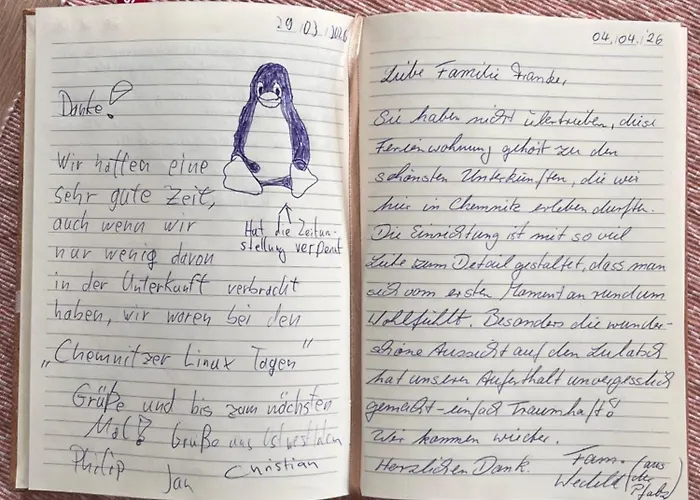 29.03.2026
Danke!
Wir hatten eine
sehr gute Zeit,
auch wenn wir
nur wenig davon
in der Unterkunft verbracht
haben, wir waren bei den
„Chemnitzer Linux Tagen"
Grüße und bis zum nächsten
Mal! Grüße aus Ostwestfalen
Philip Jan Christian
Hat die Zeitum-
stellung verpennt
04.04.'26
Liebe Familie Franke,
Sie haben nicht übertrieben, diese
Ferienwohnung gehört zu den
schönsten Unterkünften, die wir
hier in Chemnitz erleben durften.
Die Einrichtung ist mit so viel
Liebe zum Detail gestaltet, dass man
sich vom ersten Moment an rundum
Wohlfühlt. Besonders die wunder-
schöne Aussicht auf den
hat unseren Aufenthalt unvergesslich
gemacht - einfach Traumhaft!
Wir kommen wieder.
Herzlichen Dank. Fam.
(aus der Pfalz)